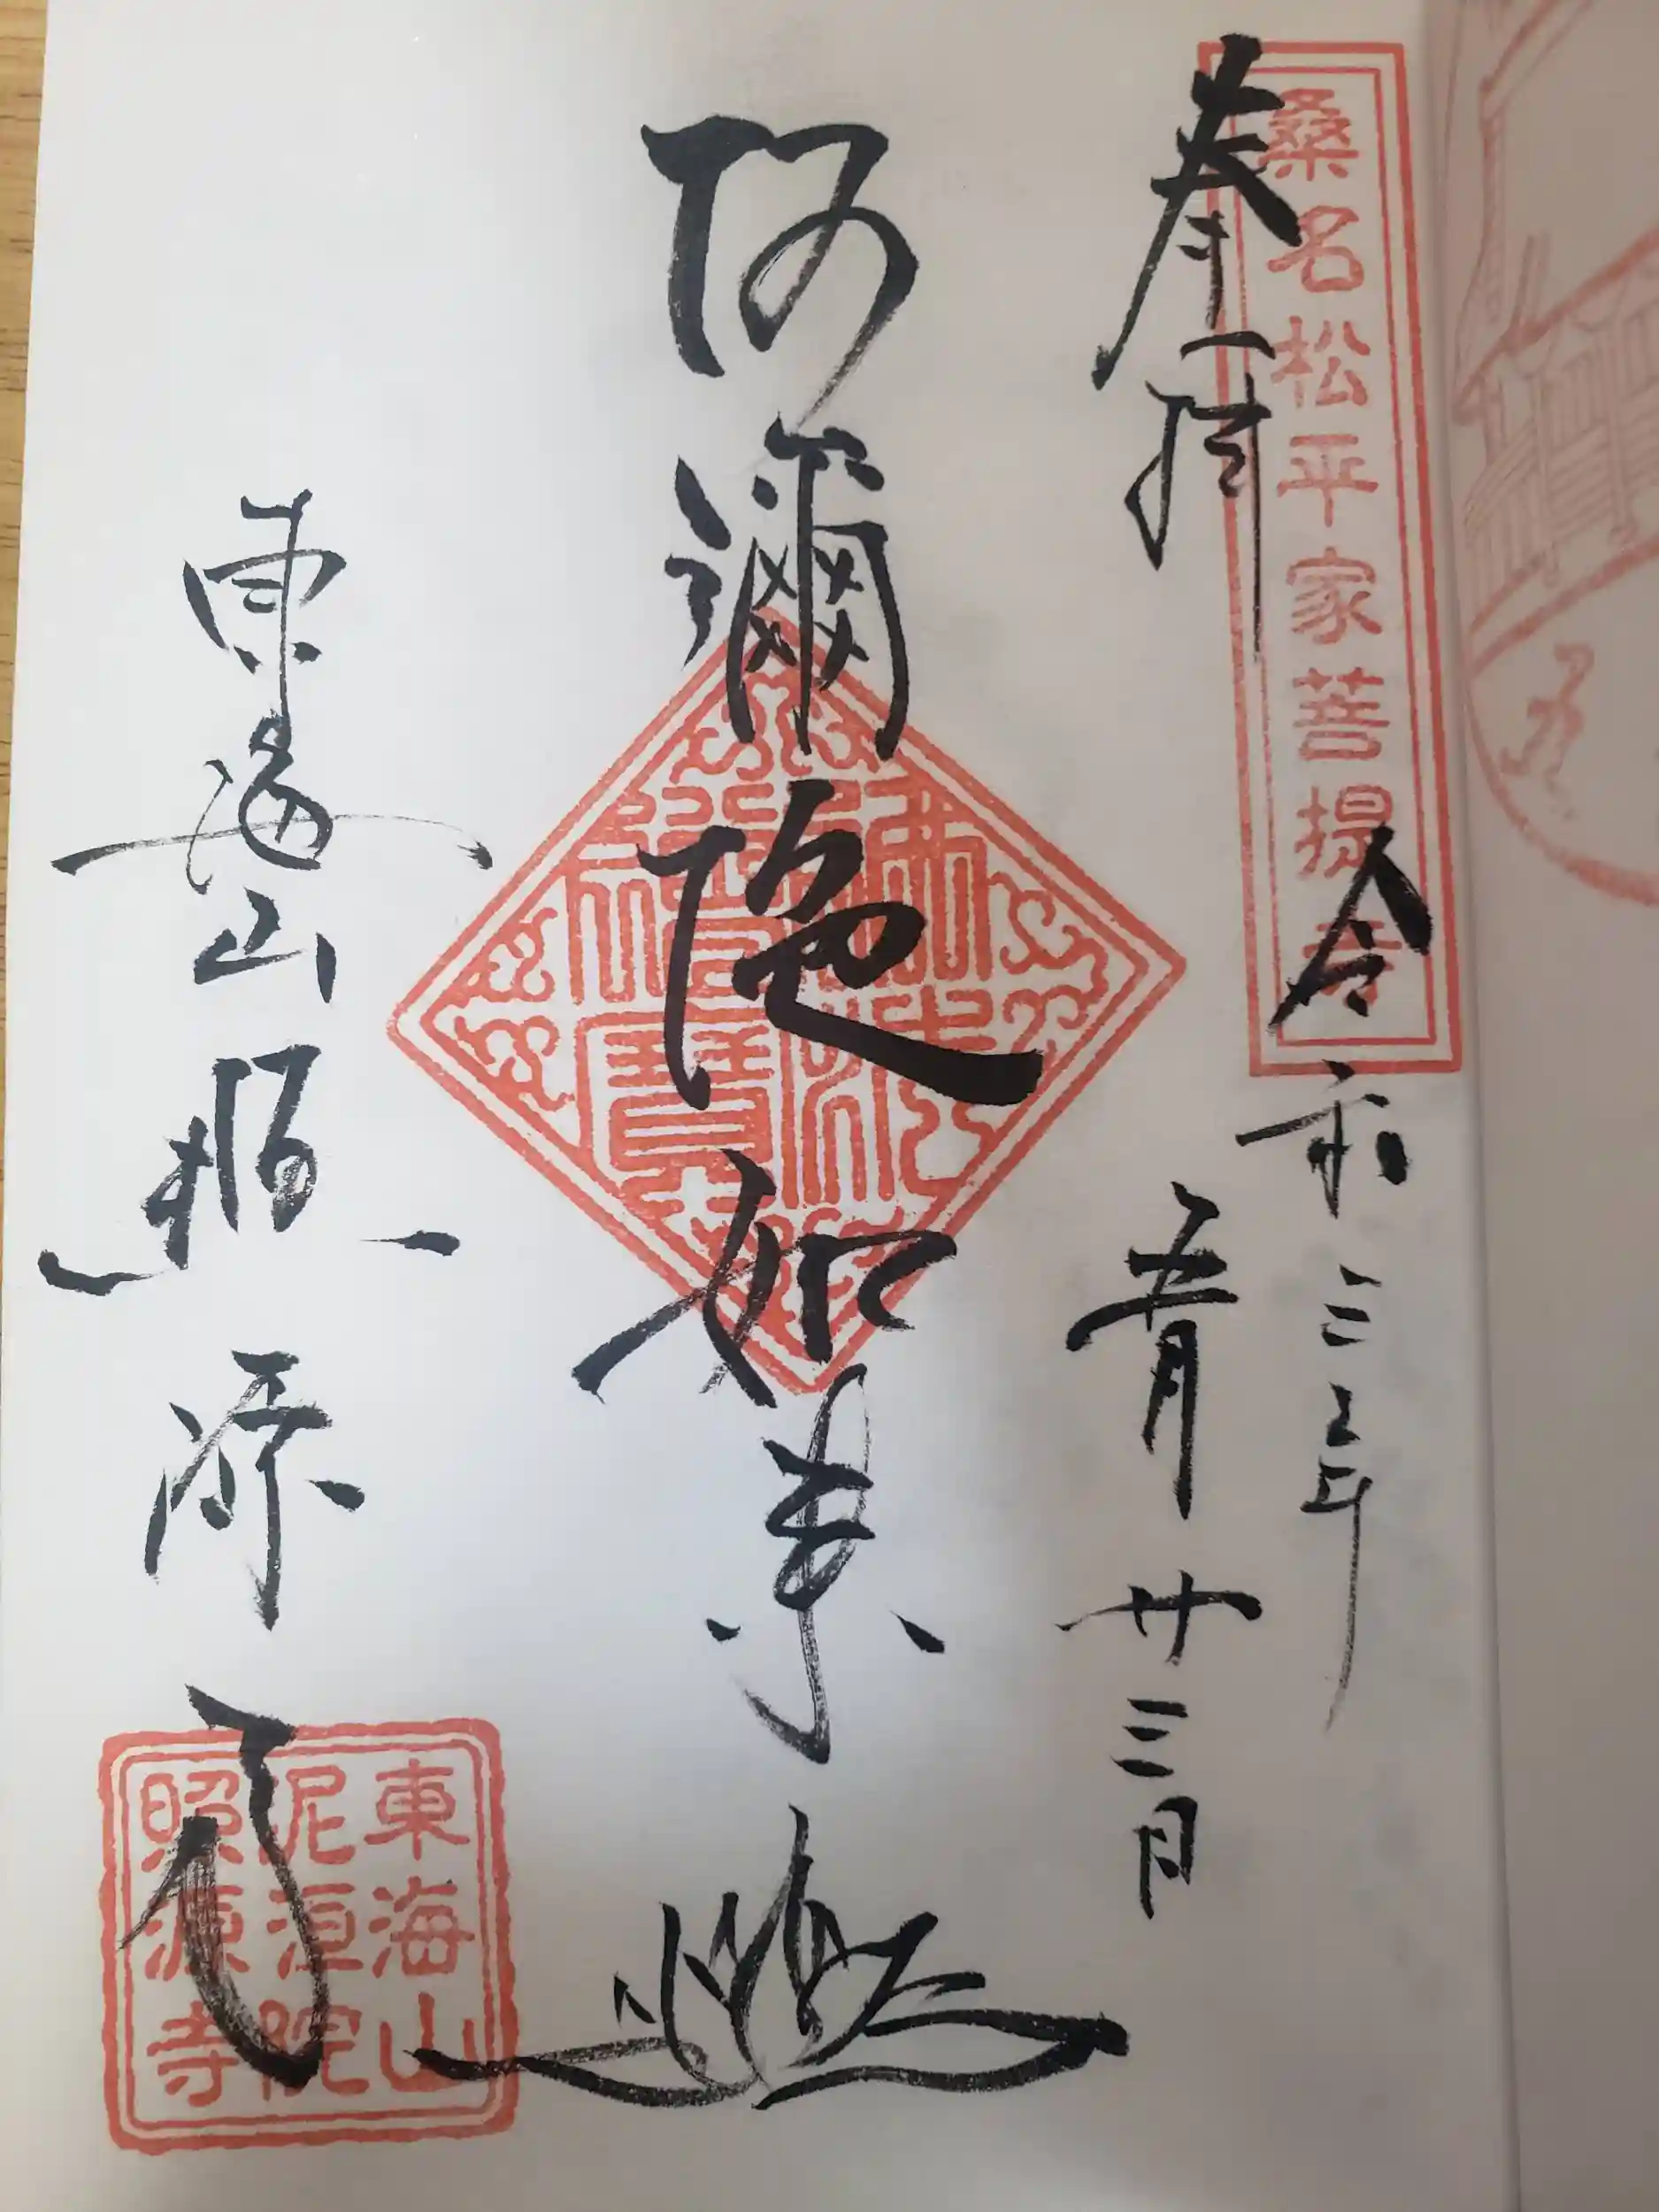 桑名松平家菩提寺
奉拝
令和三年
五月廿三日
阿彌陀如来
佛法僧寶
東海山照源寺
東海山
泥洹院
照源寺